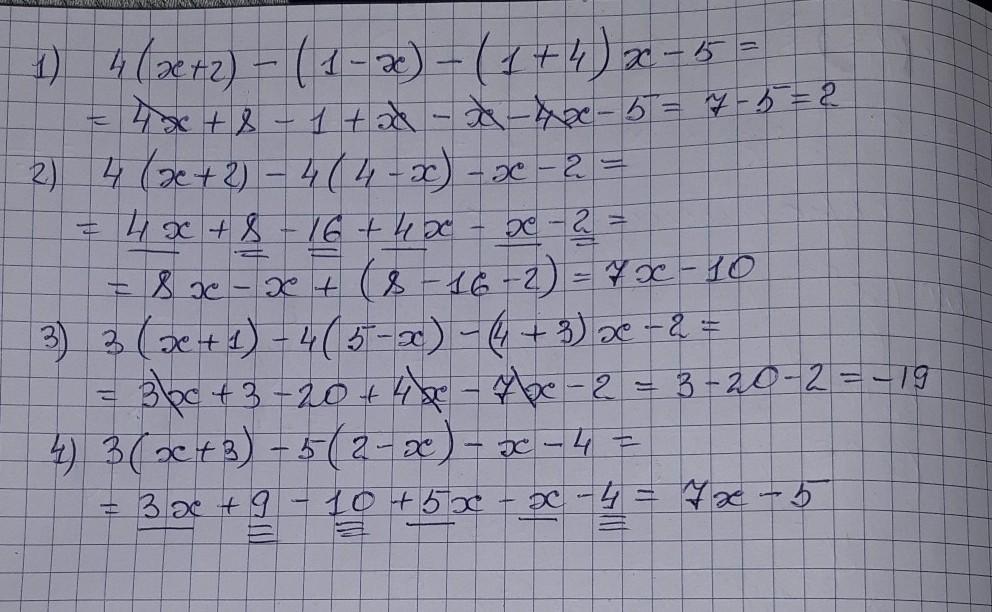 1) 4(x+2) - (1-x) - (1+4)x - 5 =
= 4x + 8 - 1 + x - x - 4x - 5 = 7 - 5 = 2
2) 4(x+2) - 4(4-x) - x - 2 =
= 4x + 8 - 16 + 4x - x - 2 =
= 8x - x + (8 - 16 - 2) = 7x - 10
3) 3(x+1) - 4(5-x) - (4+3)x - 2 =
= 3x + 3 - 20 + 4x - 7x - 2 = 3 - 20 - 2 = -19
4) 3(x+3) - 5(2-x) - x - 4 =
= 3x + 9 - 10 + 5x - x - 4 = 7x - 5